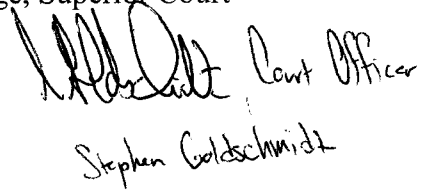 ge, Superior Court
Court Officer
Stephen Goldschmidt